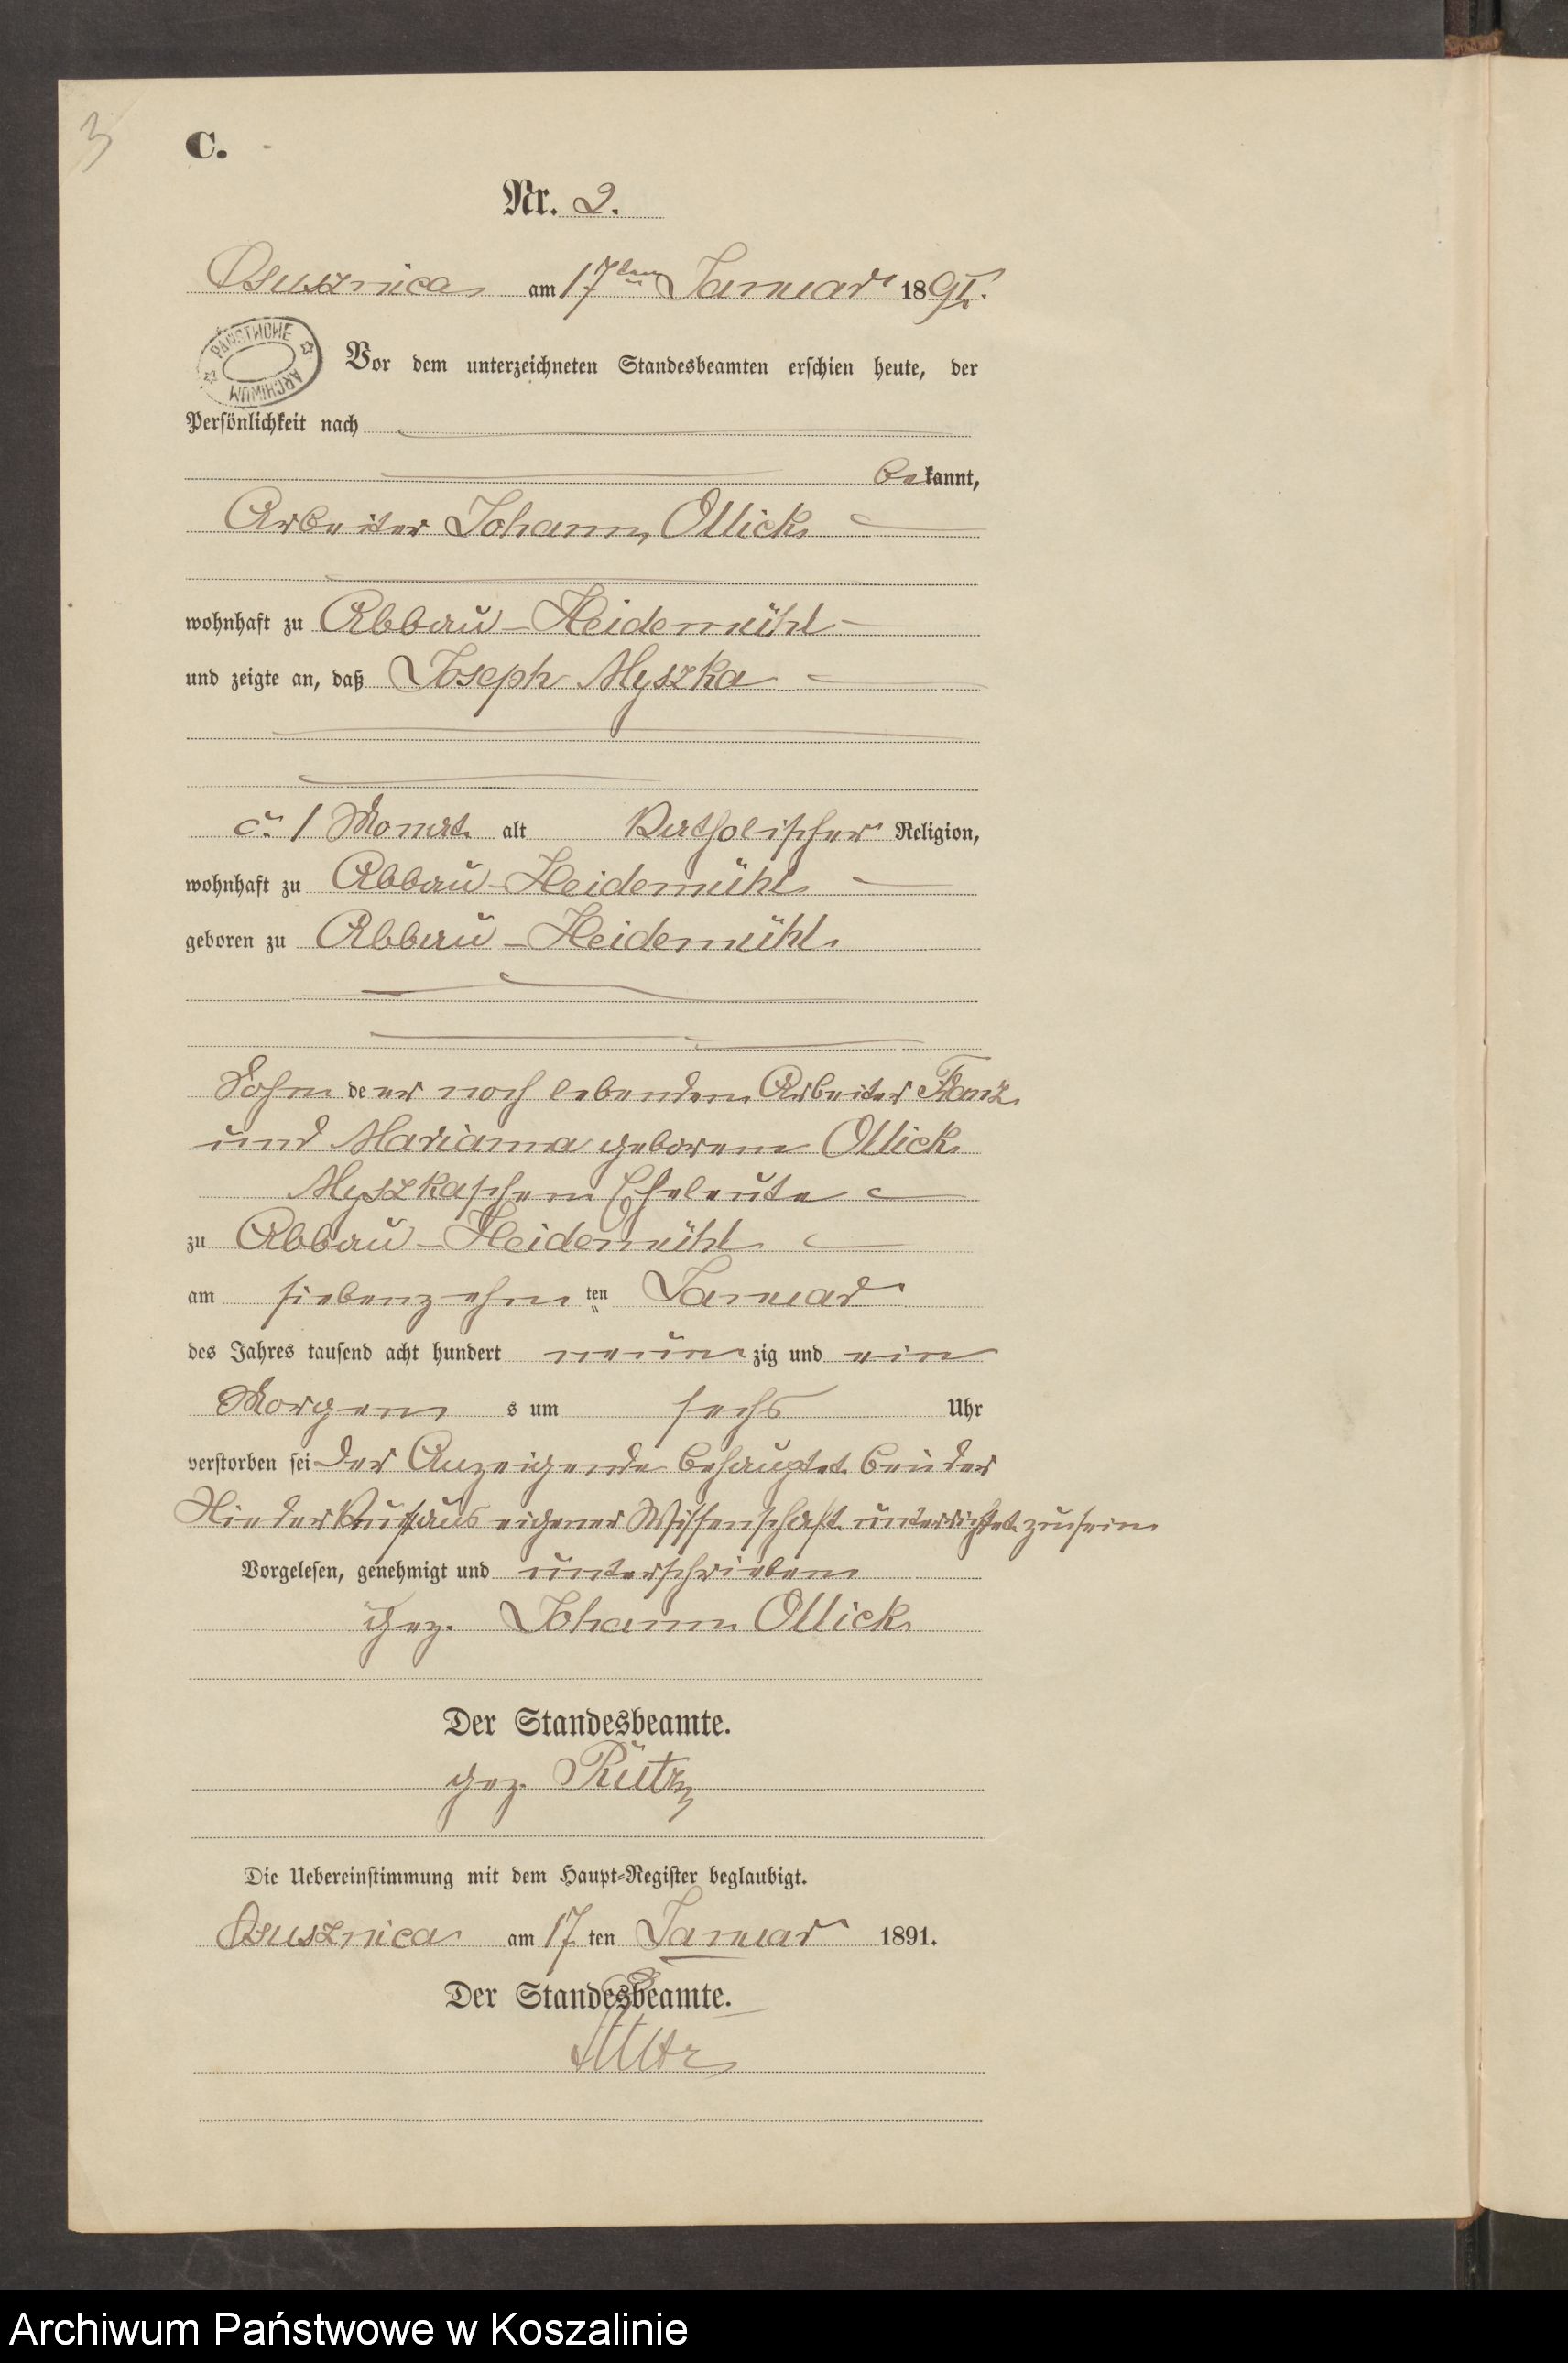 3
C.
Nr. 2.
Osusznica am 17ten Januar 1891.
PAŃSTWOWE ARCHIWUM
Vor dem unterzeichneten Standesbeamten erschien heute, der
Persönlichkeit nach
bekannt,
Arbeiter Johann Ollick
wohnhaft zu Abbau-Heidemühl
und zeigte an, daß Joseph Myszka
c. 1 Monat alt Katholischer Religion,
wohnhaft zu Abbau-Heidemühl
geboren zu Abbau-Heidemühl
Sohn der noch lebenden Arbeiter Franz
und Marianna geborene Ollick
Myszkaschen Eheleute
zu Abbau-Heidemühl
am siebenzehnten Januar
des Jahres tausend acht hundert neunzig und ein
Morgens um sechs Uhr
verstorben sei Der Anzeigende behauptet bei der
aus eigener Wissenschaft unterrichtet zu sein
Vorgelesen, genehmigt und unterschrieben
gez. Johann Ollick
Der Standesbeamte.
gez. Rütz
Die Uebereinstimmung mit dem Haupt-Register beglaubigt.
Osusznica am 17ten Januar 1891.
Der Standesbeamte.
Rütz
Archiwum Państwowe w Koszalinie